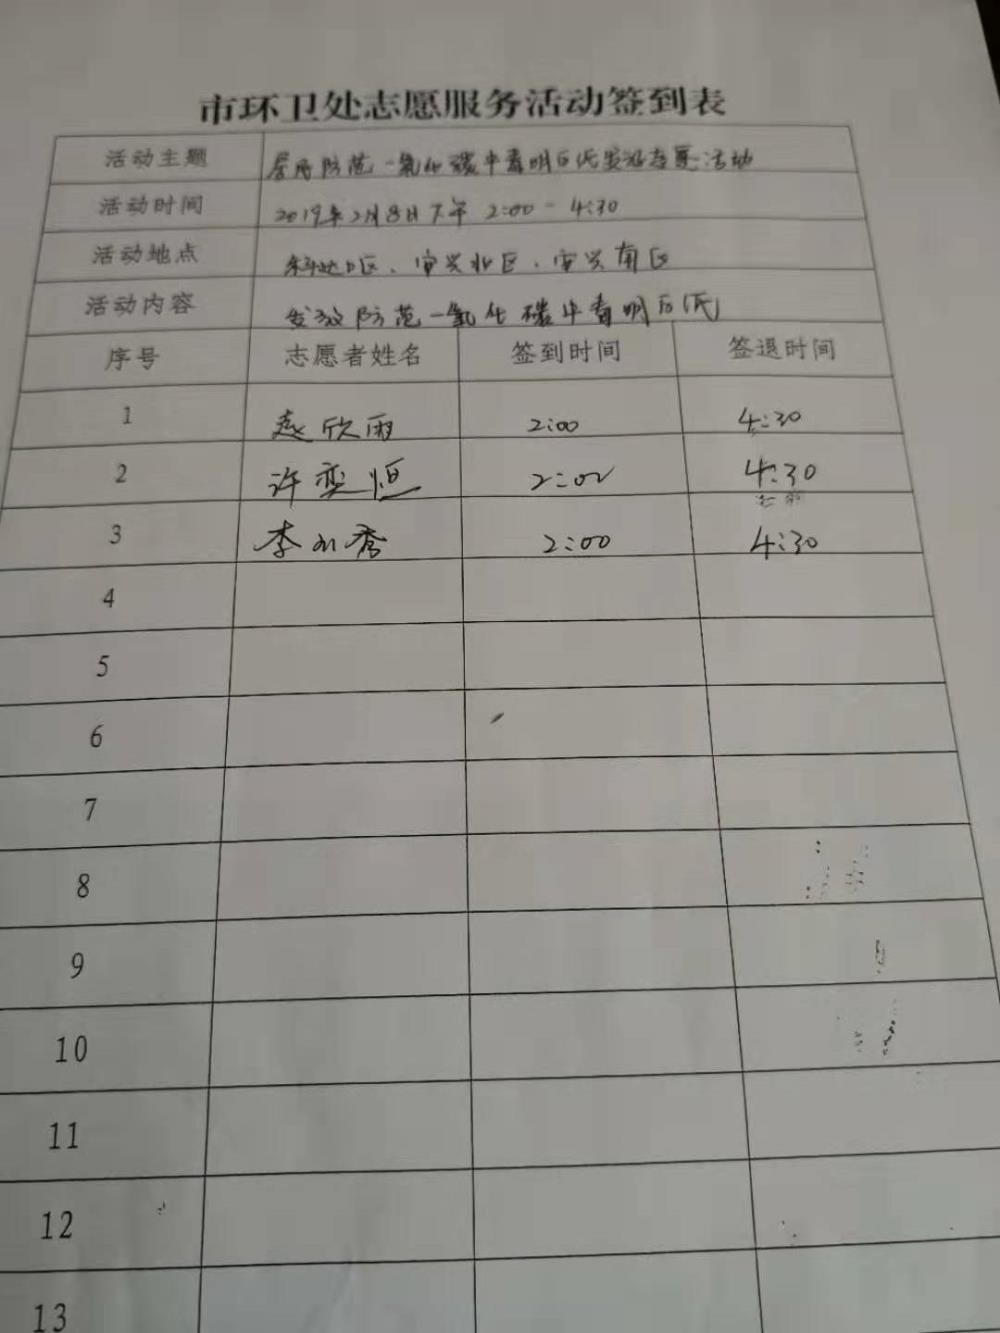 市环卫处志愿服务活动签到表
活动主题 居民防范一氧化碳中毒明白纸发放志愿活动
活动时间 2019年2月8日下午 2:00-4:30
活动地点 区、宙兴北区、宙兴南区
活动内容 发放防范一氧化碳中毒明白纸
序号 志愿者姓名 签到时间 签退时间
1 赵欣雨 2:00 4:30
2 许奕恒 2:00 4:30
3 李 秀 2:00 4:30
4
5
6
7
8
9
10
11
12
13